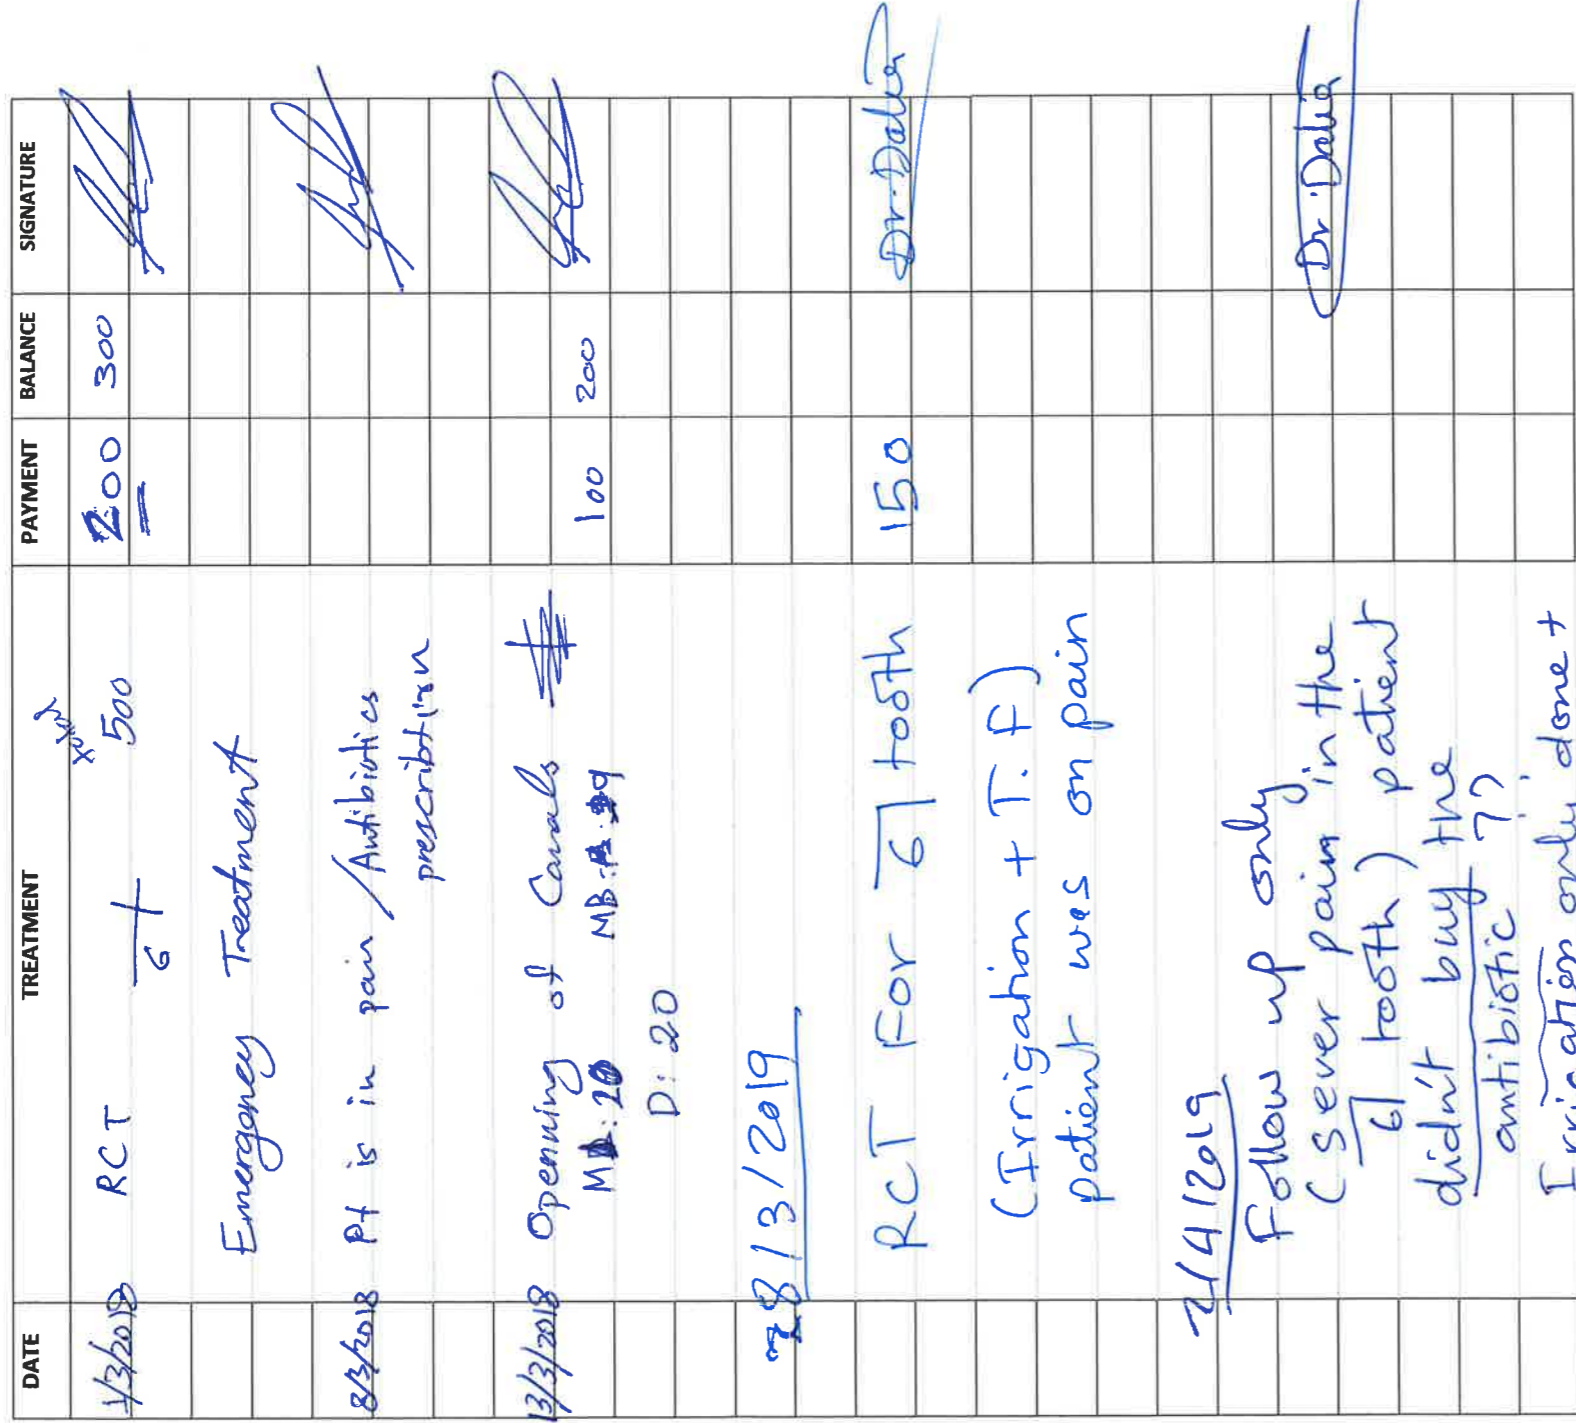 DATE TREATMENT PAYMENT BALANCE SIGNATURE
1/3/2018 RCT 6 500 200 300
Emergency Treatment
8/3/2018 Pt is in pain / Antibiotics
prescribtion
13/3/2018 Openning of Canals
100 200
D: 20
28/3/2019
RCT For 6 tooth 150 Dr. Dalia
(Irrigation + T.F)
patient was on pain
2/4/2019
Follow up only
(sever pain in the Dr. Dalia
6 tooth) patient
didn't buy the
antibiotic ??
Irrigation only done +